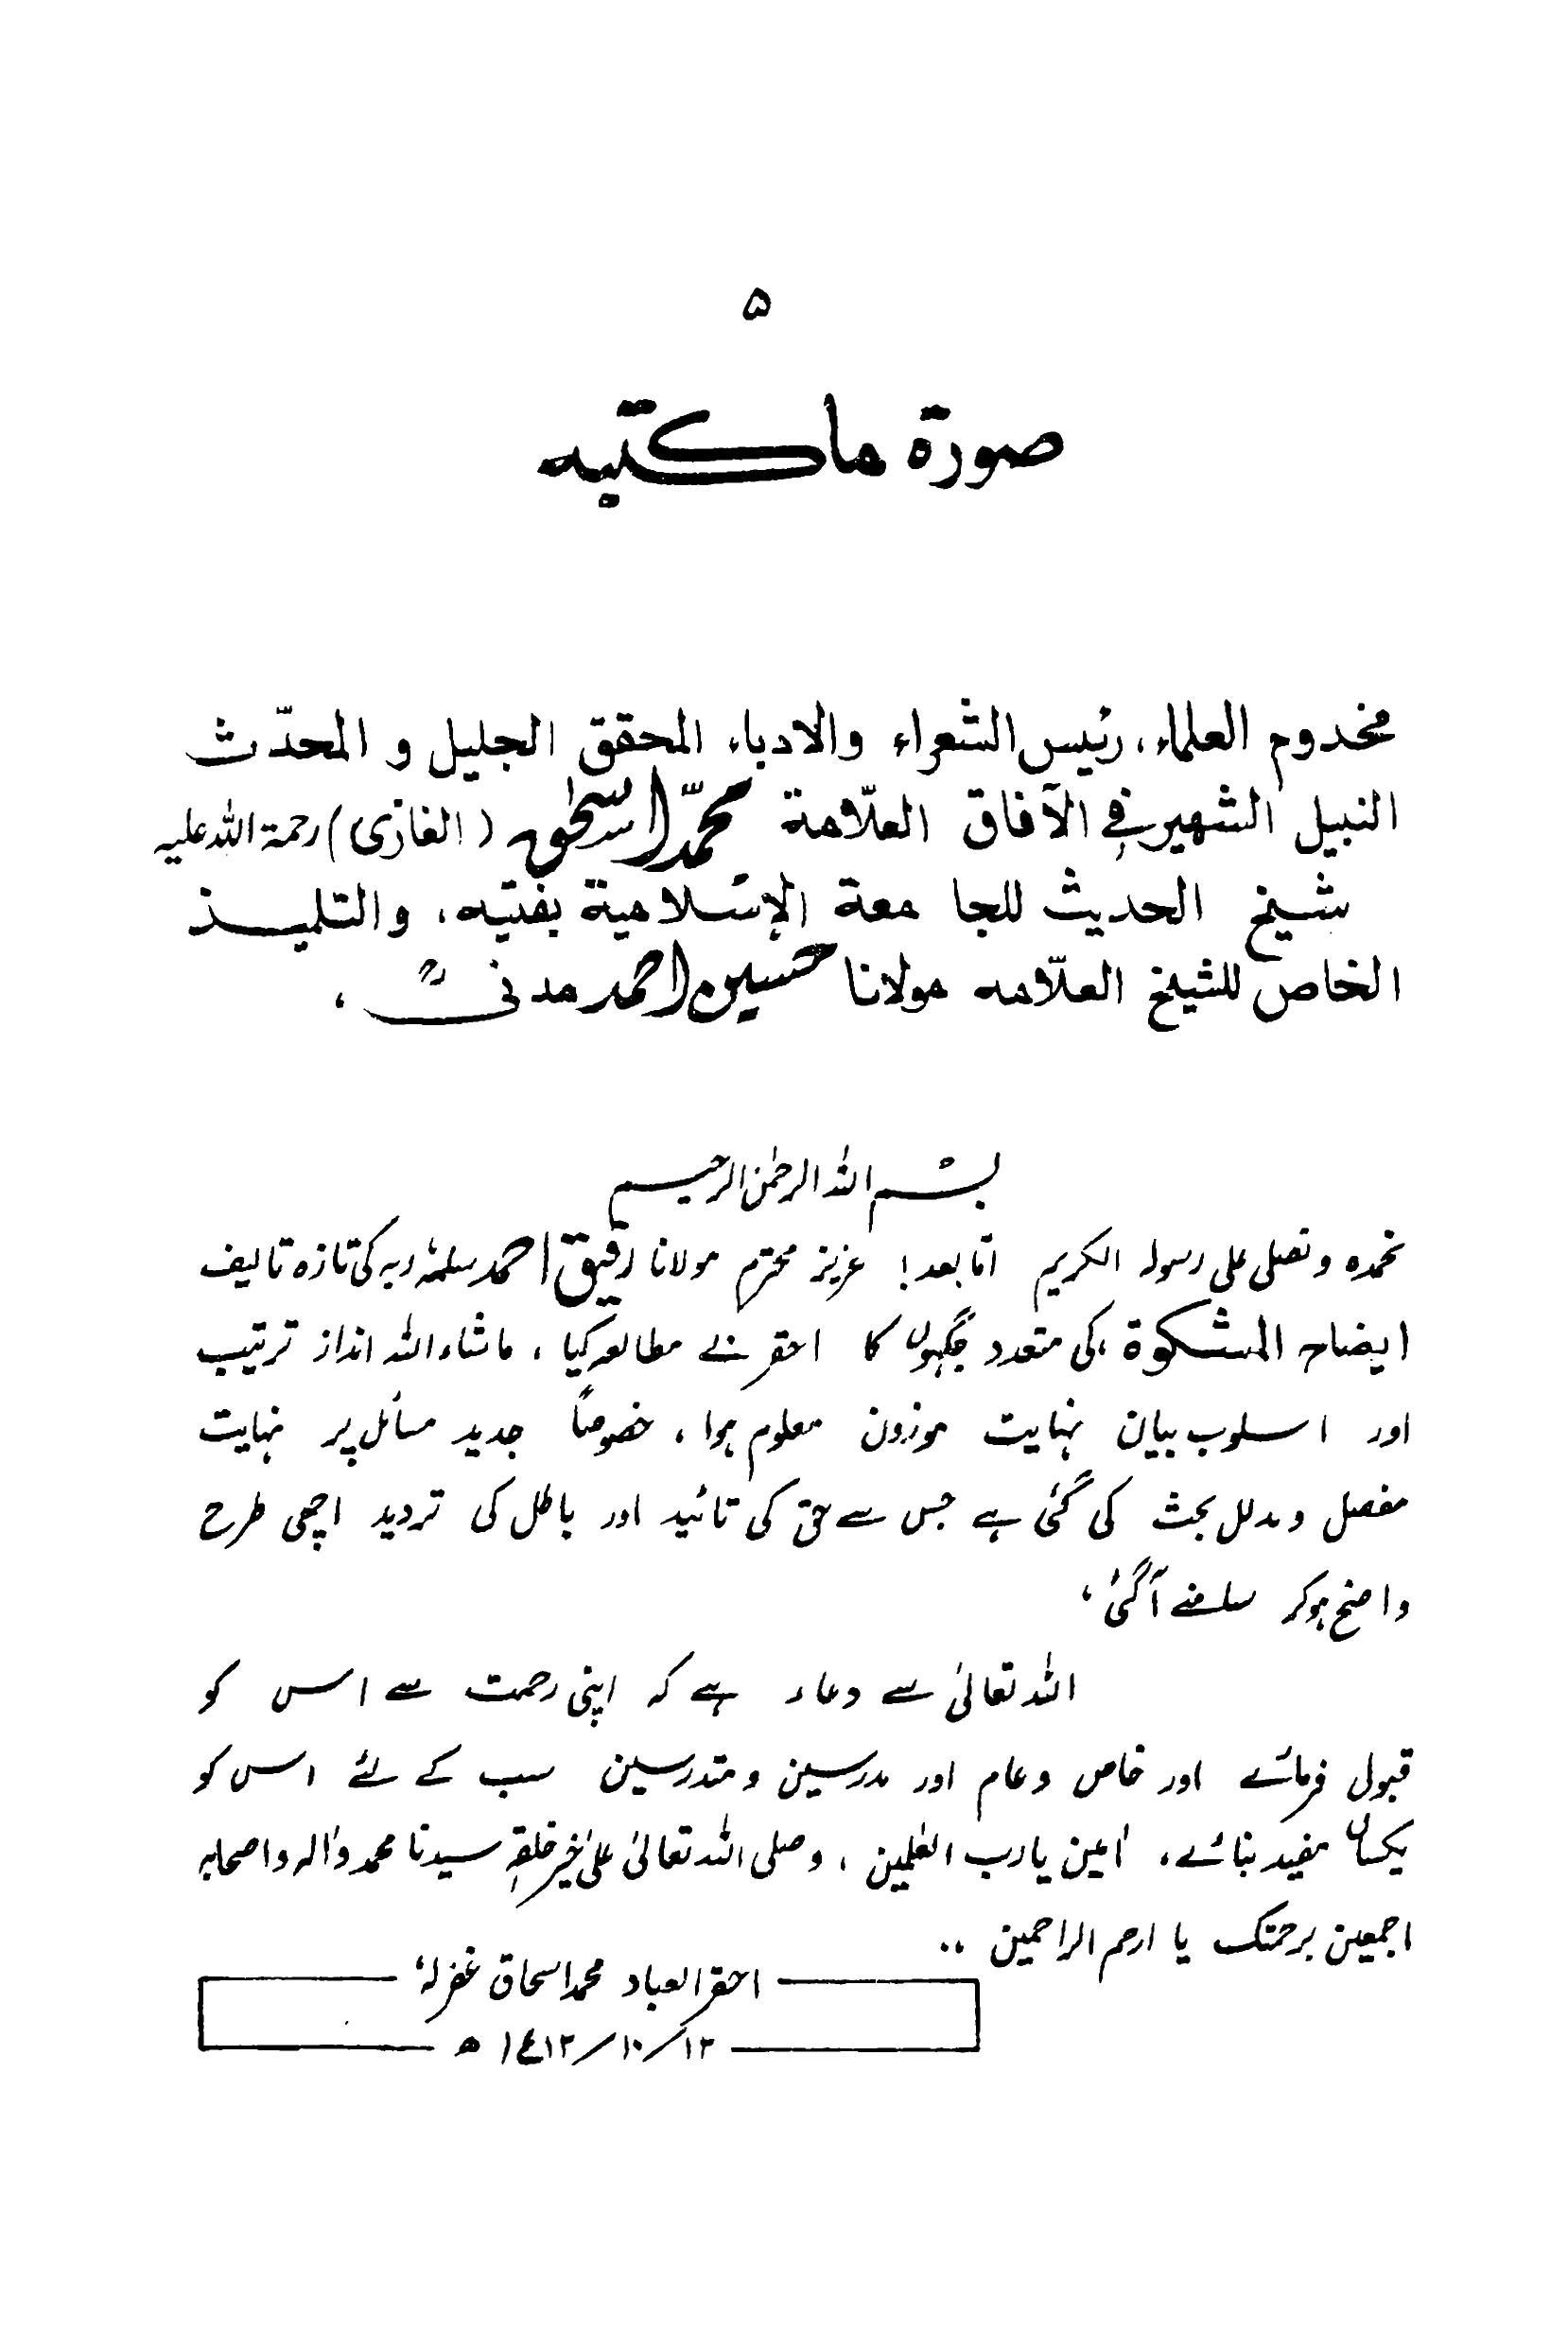 ۵
صورة ماكتبه
مخدوم العلماء، رئيس الشعراء والادباء المحقق الجليل و المحدّث
النبيل الشهير في الآفاق العلّامة محمّد اسحٰق (الغازى) رحمة الله عليه
شيخ الحديث للجا معة الإسلامية بفتيه، والتلميذ
الخاص للشيخ العلّامه مولانا حسين احمد مدنیؒ ،
بسم الله الرحمٰن الرحيم
نحمدہ ونصلی علی رسولہ الکریم امّا بعد! عزیز محترم مولانا رفیق احمد سلمہٗ ربہ کی تازہ تالیف
ایضاح المشکوة ،کی متعدد جگہوں کا احقر نے مطالعہ کیا ، ماشاء اللہ انداز ترتیب
اور اسلوب بیان نہایت موزون معلوم ہوا ، خصوصًا جدید مسائل پر نہایت
مفصل ومدلل بحث کی گئی ہے جس سے حق کی تائید اور باطل کی تردید اچھی طرح
واضح ہوکر سامنے آگئی ،
اللہ تعالیٰ سے دعاء ہے کہ اپنی رحمت سے اس کو
قبول فرمائے اور خاص وعام اور مدرسین ومتدرسین سب کے لئے اس کو
یکساں مفید بنائے، اٰمین یارب العٰلمین ، وصلی اللہ تعالیٰ علیٰ خیر خلقہٖ سیدنا محمد واٰلہ واصحابہ
اجمعین برحمتک یا ارحم الراحمین ..
احقر العباد محمد اسحاق غفرلہٗ
١٣/١٠/١٤١٢ ھ